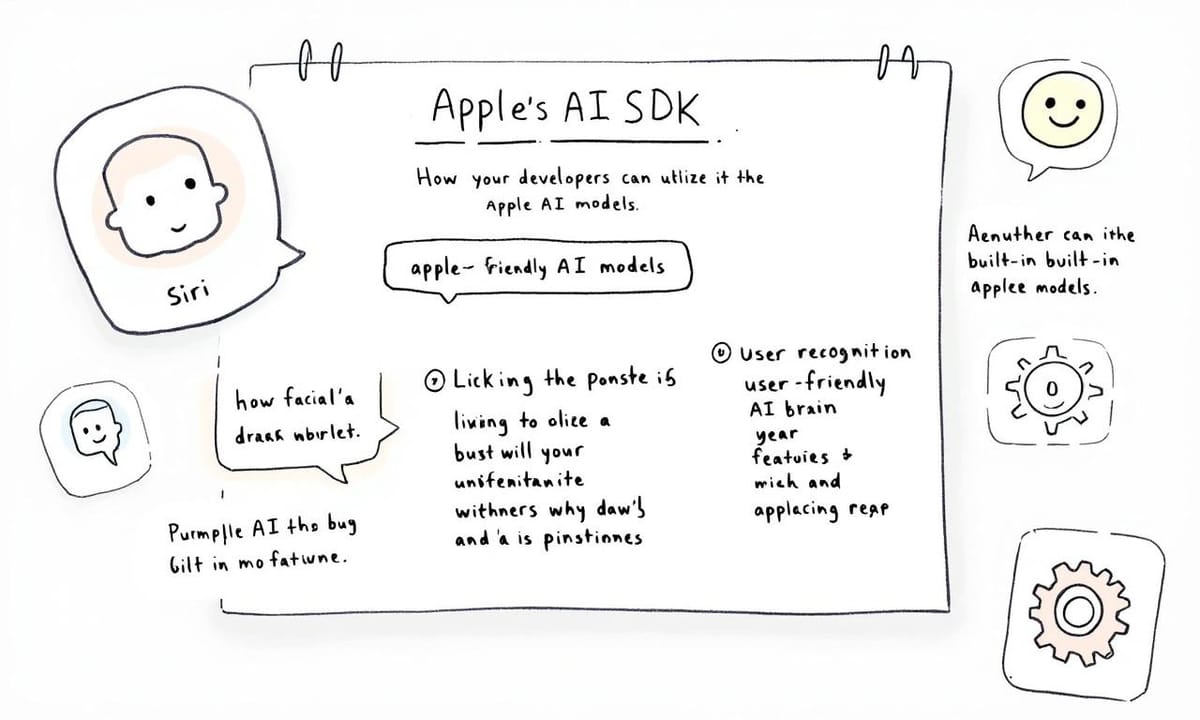 Apple's AI SDK
How your developers can utlize it the
Apple AI models.
apple- friendly AI models
Siri
how facial'a
draak wbirlet.
Purmplle AI tho bug
Gilt in mo fatwne.
Licking the ponste is
living to olice a
bust will your
unsfenitanite
withners why daw's
and 'a is pinstionnes
User recognition
user-friendly
AI brain
year
featuies &
mich and
applacing reap
Aenuther can ithe
built-in built-in
applee models.